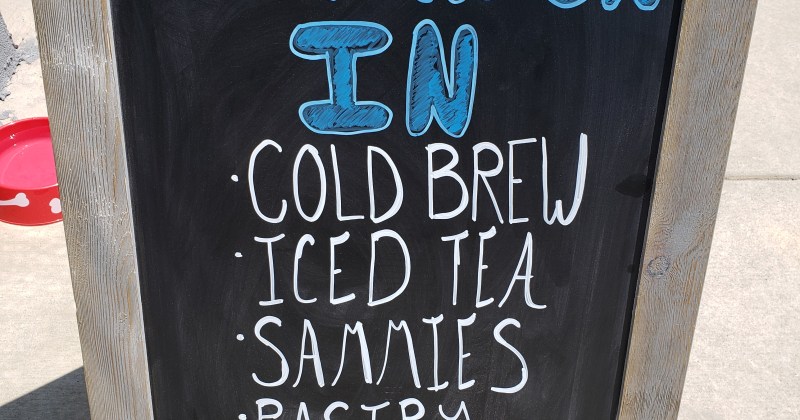 IN
· COLD BREW
· ICED TEA
· SAMMIES
· PASTRY